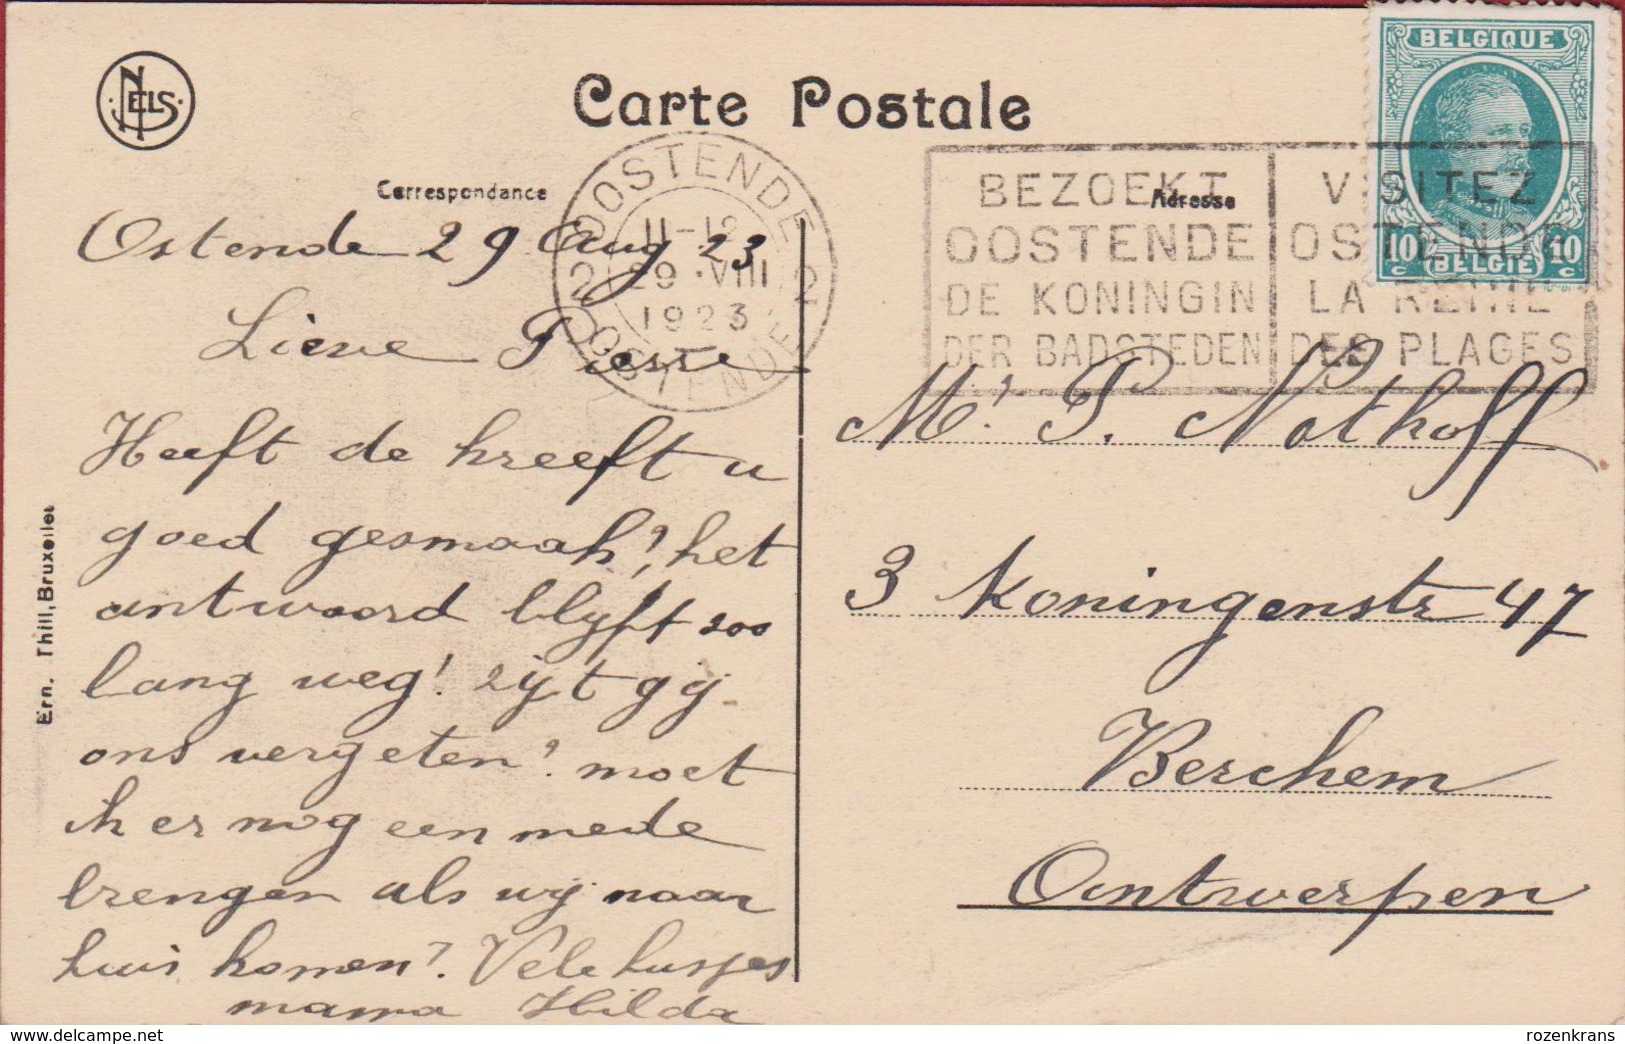 NELS
Carte Postale
BELGIQUE
10 c 10 c
BELGIË
OOSTENDE
11-12
2 29 · VIII 2
1923
OOSTENDE
BEZOEKT
OOSTENDE
DE KONINGIN
DER BADSTEDEN
VISITEZ
OSTENDE
LA REINE
DES PLAGES
Correspondance
Adresse
Ostende 29 Aug 23
Lieve Pierre
Heeft de kreeft u
goed gesmaak?, het
antwoord blyft zoo
lang weg! zijt gij
ons vergeten? moet
ik er nog een mede
brengen als wij naar
huis komen? Vele kusjes
mama Hilda
Mr. P. Nothoff
3 Koningenstr 47
Berchem
Antwerpen
Ern. Thill, Bruxelles
rozenkrans